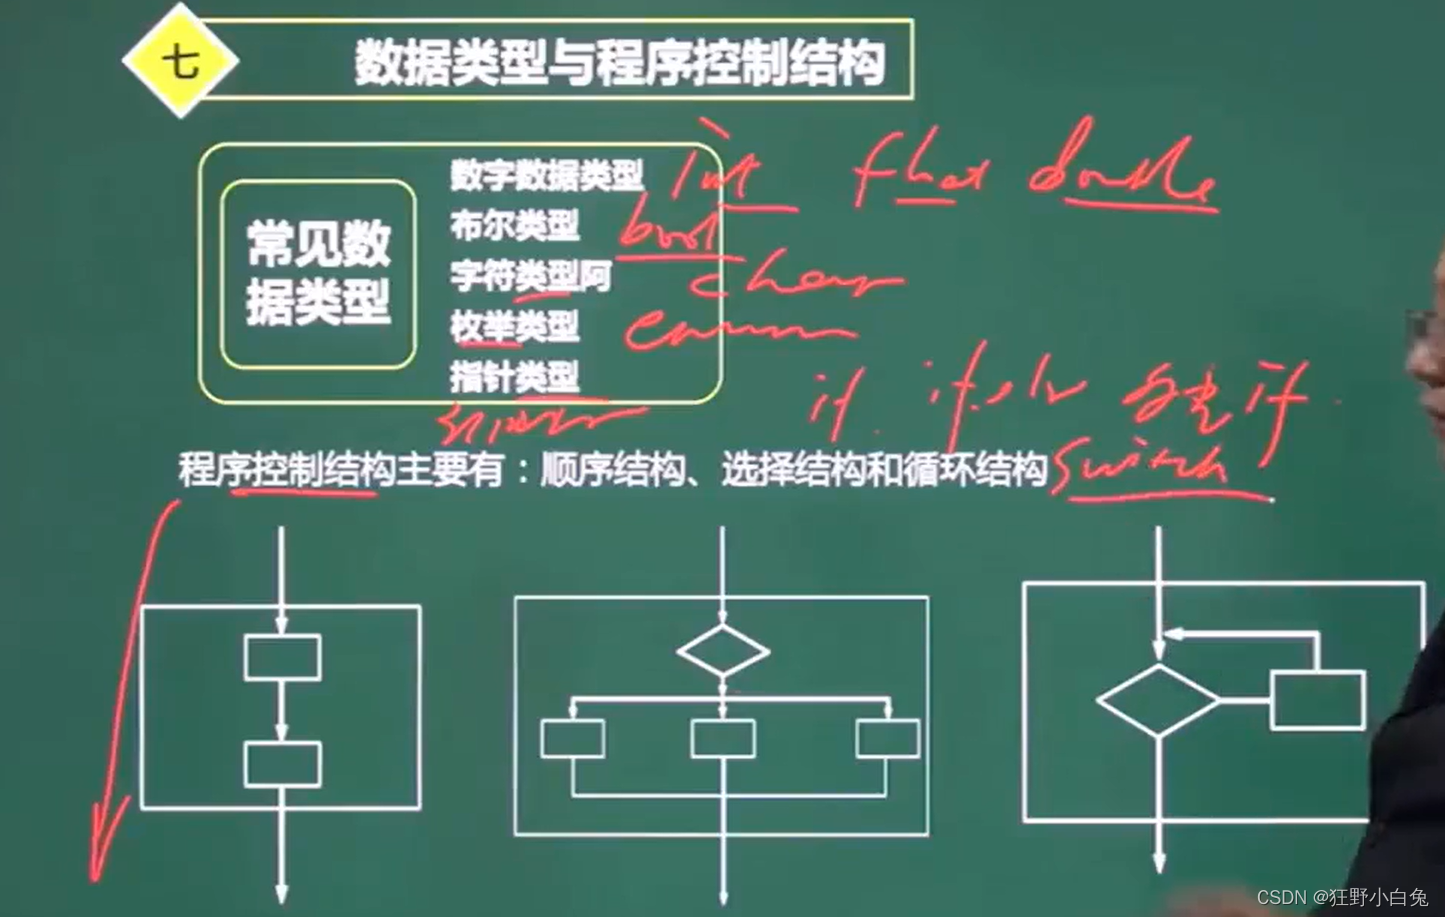 七
数据类型与程序控制结构
常见数
据类型
数字数据类型 int float double
布尔类型 bool
字符类型阿 char
枚举类型 enum
指针类型
if if else 多重 if
程序控制结构主要有：顺序结构、选择结构和循环结构 switch
CSDN @狂野小白兔